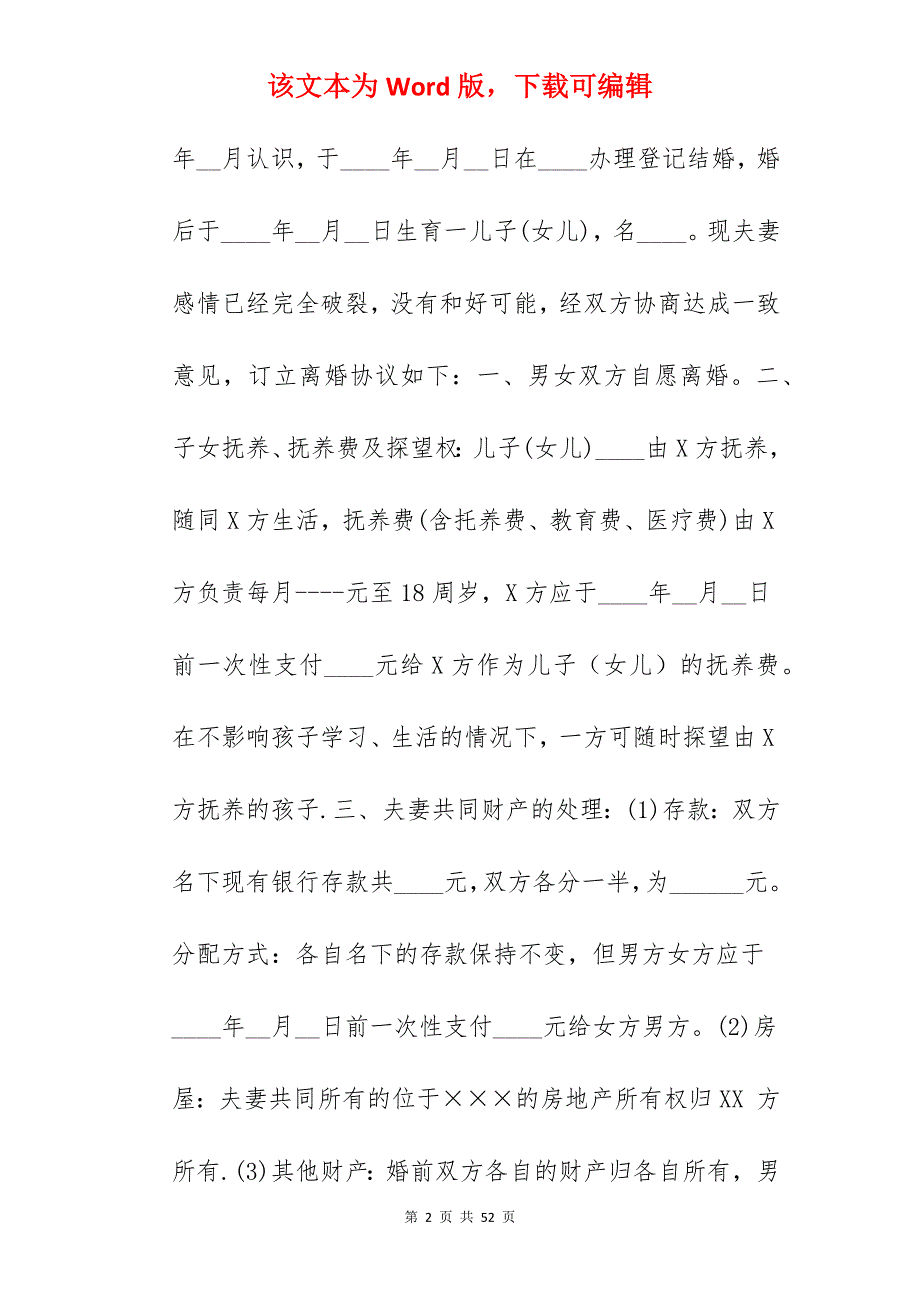 该文本为 Word 版，下载可编辑
年__月认识，于____年__月__日在____办理登记结婚，婚
后于____年__月__日生育一儿子(女儿)，名____。现夫妻
感情已经完全破裂，没有和好可能，经双方协商达成一致
意见，订立离婚协议如下：一、男女双方自愿离婚。二、
子女抚养、抚养费及探望权：儿子(女儿)____由 X 方抚养，
随同 X 方生活，抚养费(含托养费、教育费、医疗费)由 X
方负责每月----元至 18 周岁，X 方应于____年__月__日
前一次性支付____元给 X 方作为儿子（女儿）的抚养费。
在不影响孩子学习、生活的情况下，一方可随时探望由 X
方抚养的孩子.三、夫妻共同财产的处理：(1)存款：双方
名下现有银行存款共____元，双方各分一半，为______元。
分配方式：各自名下的存款保持不变，但男方女方应于
____年__月__日前一次性支付____元给女方男方。(2)房
屋：夫妻共同所有的位于×××的房地产所有权归 XX 方
所有.(3)其他财产：婚前双方各自的财产归各自所有，男
第 2 页 共 52 页